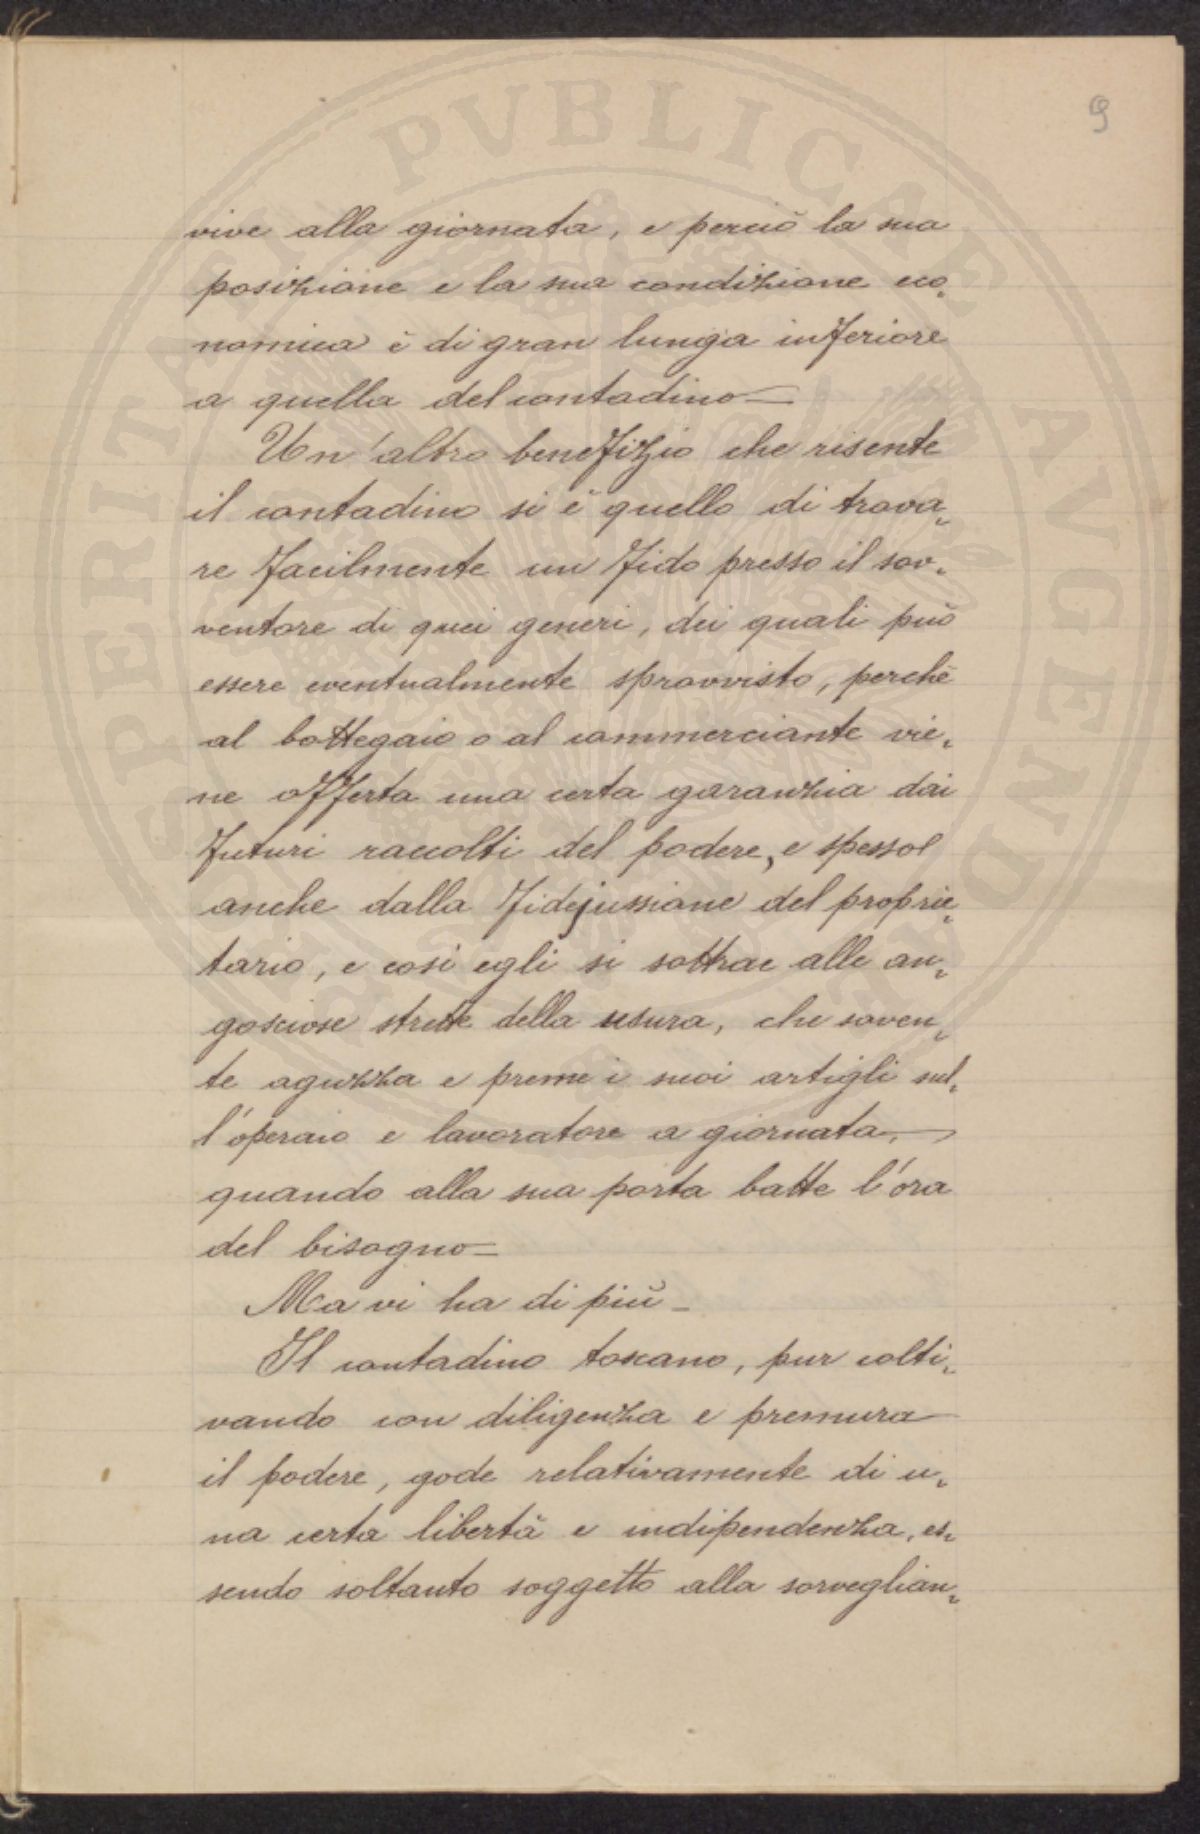 9
vive alla giornata, e perciò la sua
posizione e la sua condizione eco-
nomica è di gran lunga inferiore
a quella del contadino—
Un'altro benefizio che risente
il contadino si è quello di trova-
re facilmente un fido presso il sov-
ventore di quei generi, dei quali può
essere eventualmente sprovvisto, perchè
al bottegaio o al commerciante vie-
ne offerta una certa garanzia dai
futuri raccolti del podere, e spesso
anche dalla fidejussione del proprie-
tario, e così egli si sottrae alle an-
gosciose strette della usura, che soven-
te aguzza e preme i suoi artigli sul-
l'operaio e lavoratore a giornata,
quando alla sua porta batte l'ora
del bisogno—
Ma vi ha di più—
Il contadino toscano, pur colti-
vando con diligenza e premura
il podere, gode relativamente di u-
na certa libertà e indipendenza, es-
sendo soltanto soggetto alla sorveglian-
PROSPERITATI PVBLICAE AVGENDAE